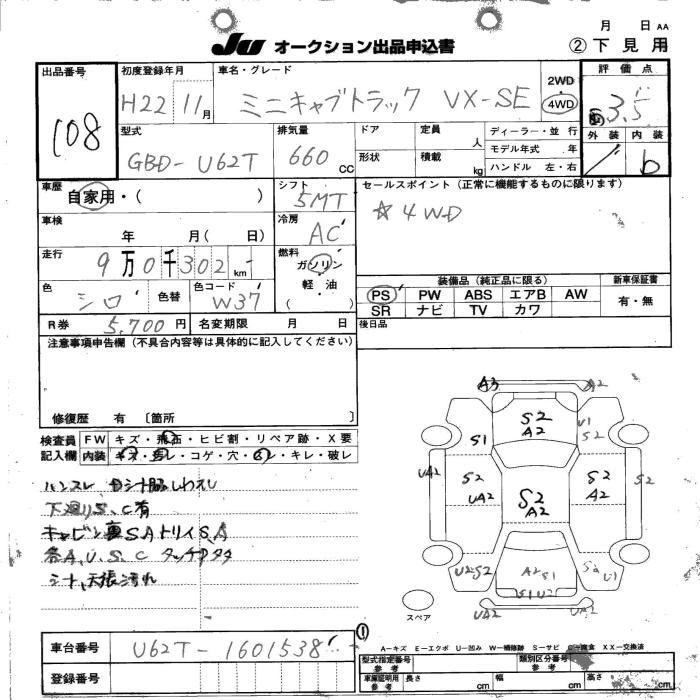 月 日 AA
JU オークション出品申込書 ②下見用
出品番号 108
初度登録年月 H22 11月
車名・グレード ミニキャブトラック VX-SE
2WD
4WD
評価点 3.5
外装 内装 b
型式 GBD-U62T
排気量 660 CC
ドア 定員 人
形状 積載 kg
ディーラー・並行
モデル年式 年
ハンドル 左・右
車歴 自家用・( )
シフト 5MT
セールスポイント (正常に機能するものに限ります)
☆4WD
車検 年 月( 日)
冷房 AC
走行 9万0千302 km
燃料 ガソリン
軽・油
( )
色 シロ 色替 色コード W37
装備品 (純正品に限る) 新車保証書
PS PW ABS エアB AW 有・無
SR ナビ TV カワ
R券 5,700円 名変期限 月 日
後日品
注意事項申告欄 (不具合内容等は具体的に記入してください)
修復歴 有 〔箇所 〕
検査員 FW キズ・飛石・ヒビ割・リペア跡・X要
記入欄 内装 キズ・コゲ・穴・キレ・破レ
ハンスレ
下廻りS、C有
キャビン裏SAトリイSA
各A、U、S、C タッチアタ
シート、天張汚れ
A3 A2
S2
A2
S1 U1
UA2 S2
UA2
S2
A2
S2
A2
S2
U2S2 A2 S1 S2 U1
S1 U2
UA2 UA2
スペア
車台番号 U62T-1601538
登録番号
A-キズ E-エクボ U-凹み W-補修跡 S-サビ C-腐食 XX-交換済
型式指定番号 参考 類別区分番号 参考
車庫証明用 参考 長さ cm 幅 cm 高さ cm